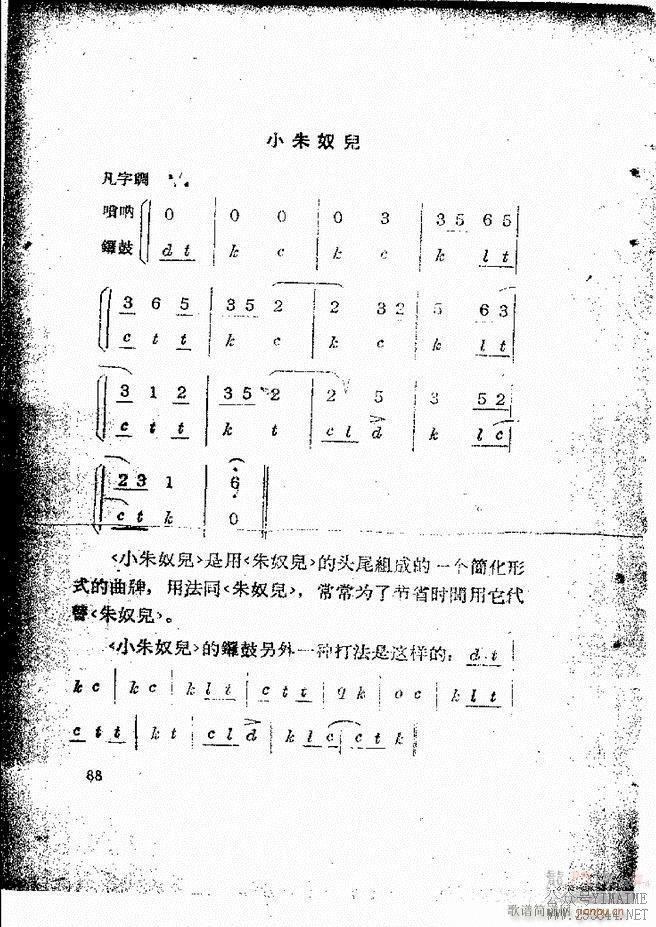 小朱奴兒
凡字調
嗩吶 0 | 0 0 | 0 3 | 3 5 6 5 |
鑼鼓 d t | k c | k c | k l t |
3 6 5 | 3 5 2 | 2 3 2 | 5 6 3 |
c t t | k c | k c | k l t |
3 1 2 | 3 5 2 | 2 5 | 3 5 2 |
c t t | k t | c l d | k l c |
2 3 1 | 6 ||
c t k | 0 ||
<小朱奴兒>是用<朱奴兒>的头尾組成的一个简化形
式的曲牌，用法同<朱奴兒>，常常为了节省时間用它代
替<朱奴兒>。
<小朱奴兒>的鑼鼓另外一种打法是这样的：d t |
k c | k c | k l t | c t t | q k | o c | k l t |
c t t | k t | c l d | k l c | c t k ||
88
公众号YIMAIME
歌谱简谱网
jianpu.cn